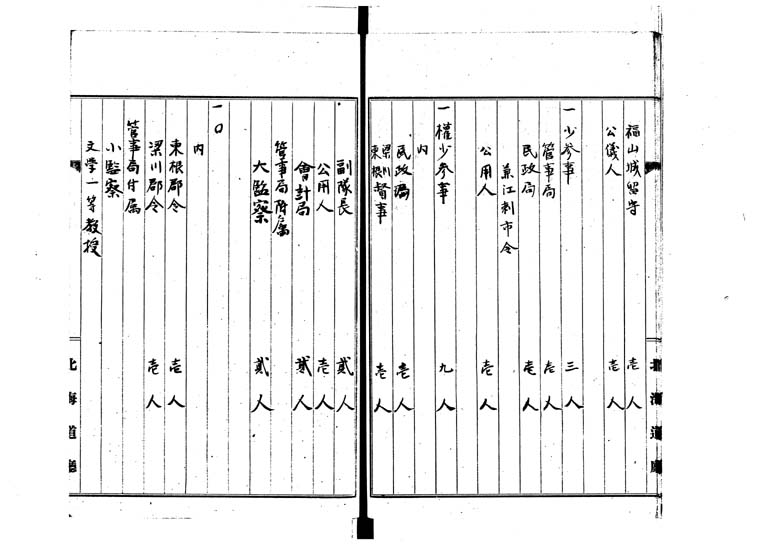 福山城留守 壱人
公儀人 壱人
一少参事 三人
管事局 壱人
民政局 壱人
兼江刺市令
公用人 壱人
一權少参事 九人
内
民政局 壱人
梁川東根督事 壱人
副隊長 貳人
公用人 壱人
會計局 貳人
管事局附属
大監察 貳人
一〇
内
東根郡令 壱人
梁川郡令 壱人
管事局付属
小監察
文学一等教授
北海道廳
北海道廳